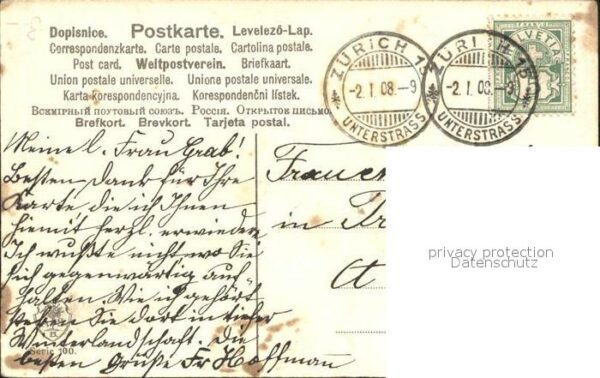 Dopisnice. Postkarte. Levelező-Lap.
Correspondenzkarte. Carte postale. Cartolina postale.
Post card. Weltpostverein. Briefkaart.
Union postale universelle. Unione postale universale.
Karta korespondencyjna. Korespondenční lístek.
Всемірный почтовый союзъ. Россія. Открытое письмо.
Brefkort. Brevkort. Tarjeta postal.
ZÜRICH 15
-2.I.08.-9
UNTERSTRASS
ZÜRICH 15
-2.I.08.-9
UNTERSTRASS
HELVETIA
Meine l. Frau Grab!
Besten Dank für Ihre
Karte die ich Ihnen
hiemit herzl. erwiedere
Ich wußte nicht wo Sie
sich gegenwärtig auf-
halten. Wie ich gehört
Sie dort in tiefer
Winterlandschaft. Die
besten Grüße Fr Hoffmann
Serie 100.
Frau
in
A
privacy protection
Datenschutz